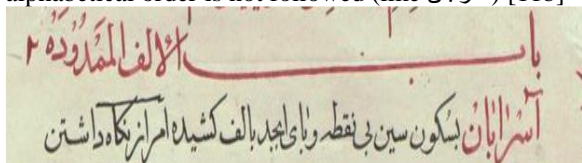 alphabetical order is not followed (line
باب الالف الممدوده
آسرابان بسکون سین بی نقطه و بای ابجد بالف کشیده امر از نگاه داشتن